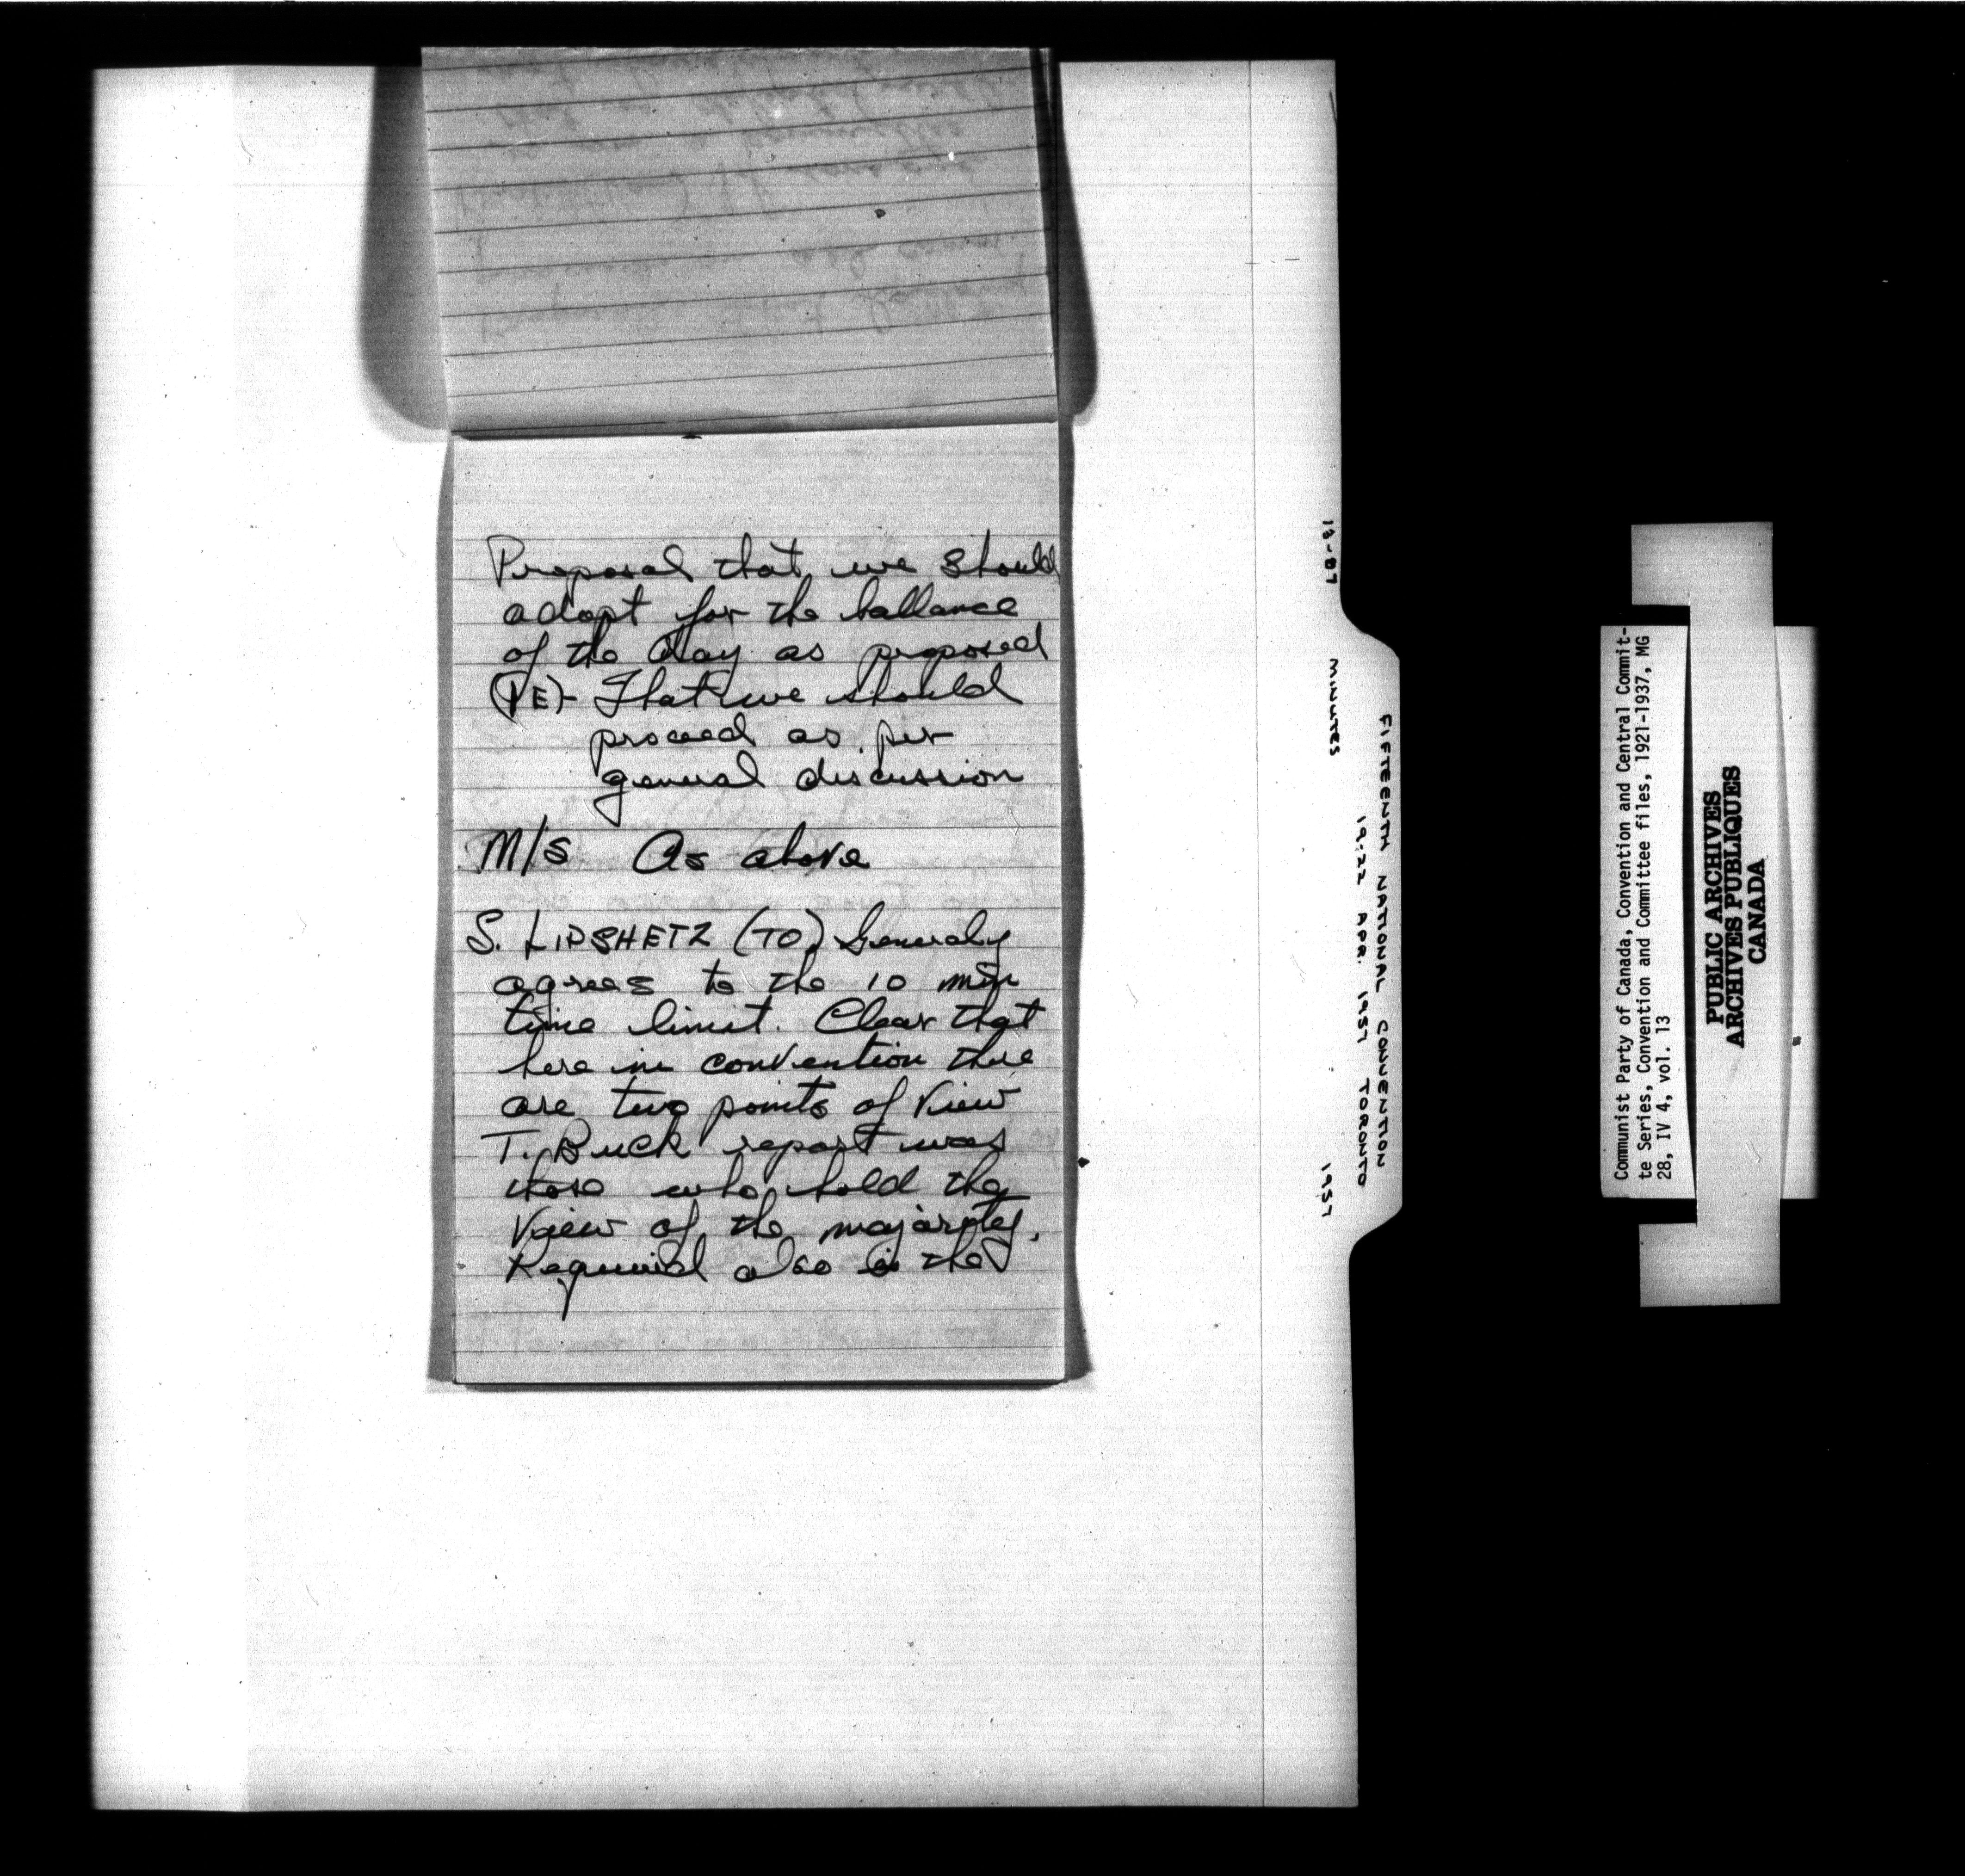 Proposal that we should
adopt for the ballance
of the day as proposed
(PE)- That we should
proceed as per
general discussion
M/S As above
S. LIPSHETZ (TO) Generaly
agrees to the 10 min
time limit. Clear that
here in convention there
are two points of view
T. Buck report was
those who hold the
view of the majority.
Required also is the
13-87
MINUTES
1957
FIFTEENTH NATIONAL CONVENTION
19-22 APR. 1957 TORONTO
Communist Party of Canada, Convention and Central Commit-
te Series, Convention and Committee files, 1921-1937, MG
28, IV 4, vol. 13
PUBLIC ARCHIVES
ARCHIVES PUBLIQUES
CANADA